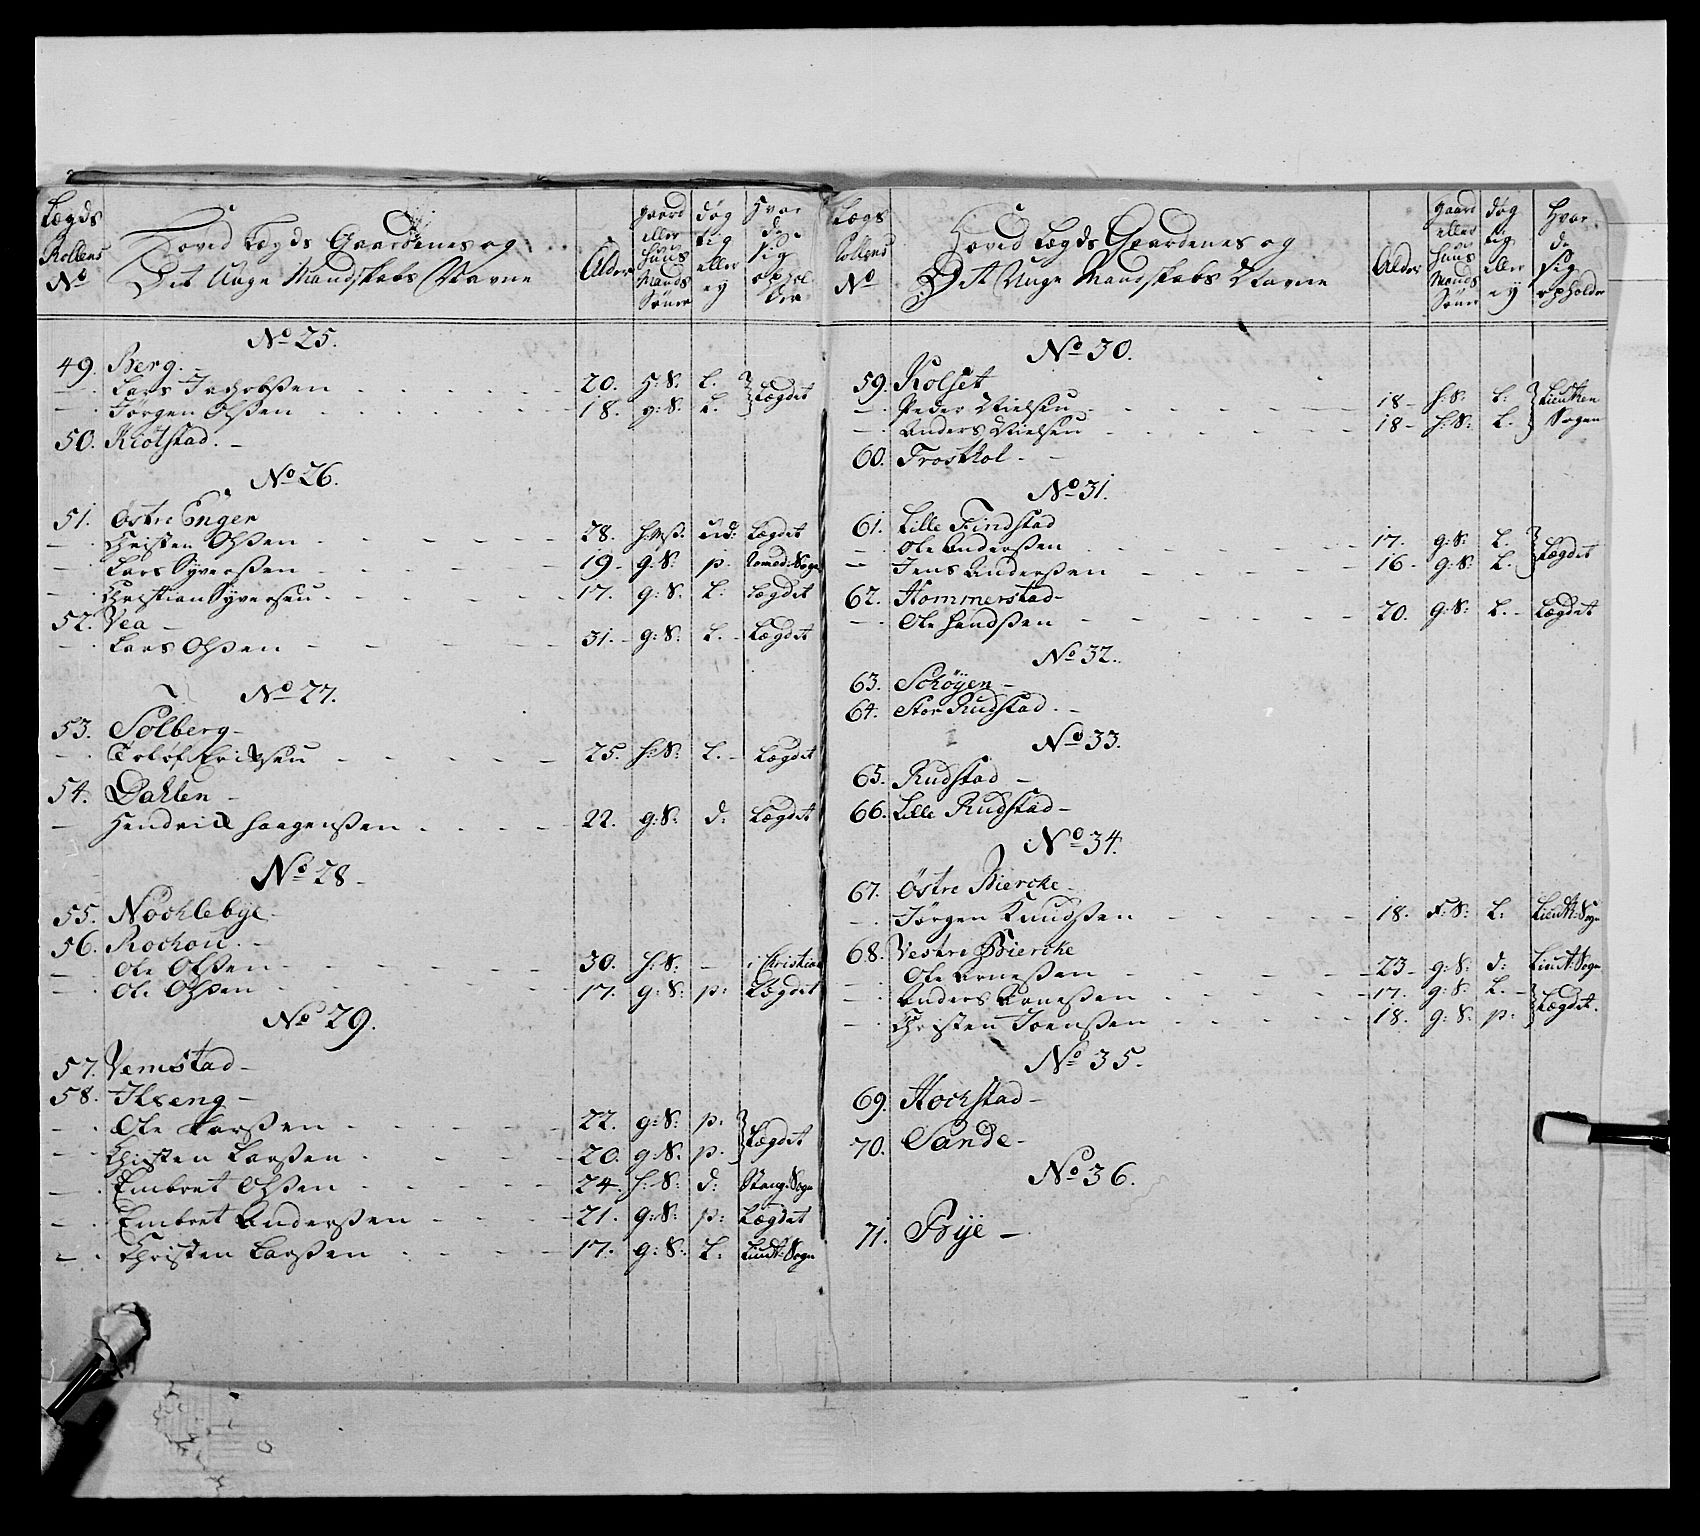 Lægds Rollens No | Hoved Lægds Gaardenes og Det Unge Mandskabs Navne | Alder | gaard eller Huus Mands Sönner | døg tig eller ey | Hvor de sig ophol der
No 25.
49. Berg.
Lars Jachobsen 20. H:S. L. Lægdet
Jørgen Olsen 18. g:S. L.
50. Klolstad.
No 26.
51. Østre Enger
Christen Olsen 28. ud: Lægdet
Lars Syversen 19. g:S. p. Romed: Sogn
Christian Syversen 17. g:S. L: Lægdet
52. Vea
Lars Olsen 31. g:S. L. Lægdet
No 27.
53. Solberg
Toelof Eriksen 25. H:S. L. Lægdet
54. Dahlen
Hendrich Haagensen 22. g:S. d: Lægdet
No 28
55. Nochlebye
56. Rochou.
Ole Olsen 30. H:S. i Christian
Ole Olsen 17. g:S. p: Lægdet
No 29.
57. Vemstad
58. Ilseng
Ole Larsen 22. g:S. p: Lægdet
Christen Larsen 20. g:S. p.
Embret Olsen 24. H:S. d: Stang: Sogn
Embret Andersen 21. g:S. p: Lægdet
Christen Larsen 17. g:S. L. Lieut: Sogn
Lægs Rollens No | Hoved Lægds Gaardenes og Det Unge Mandskabs Navne | Alder | gaard eller Huus Mands Sönner | døg tig eller ey | Hvor de sig opholder
No 30.
59. Kolset
Peder Nielsen 18. H:S. L: Sogen
Anders Nielsen 18. H:S. L.
60. Froshol
No 31.
61. Lille Findstad
Ole Andersen 17. g:S. L. Lægdet
Jens Andersen 16. g:S. L.
62. Hommerstad
Ole Handsen 20. g:S. L. Lægdet
No 32.
63. Schöyen
64. Stor Rudstad.
No 33.
65. Rudstad
66. Lille Rudstad
No 34.
67. Østre Biercke
Jørgen Knudsen 18. F:S: L. Lieut: Sogn
68. Vestre Biercke
Ole Arnesen 23. g:S. d: Lieut: Sogn
Anders Arnesen 17. g:S. L. Lægdet.
Christen Joensen 18. g:S. p.
No 35.
69. Hochstad
70. Sande
No 36.
71. Frye